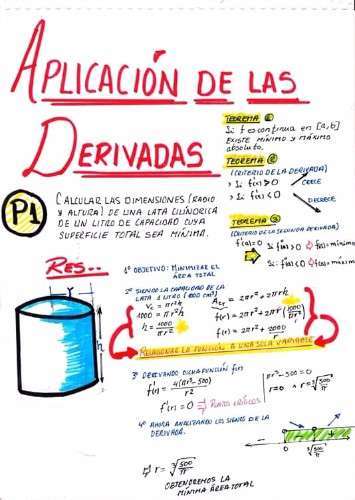 APLICACIÓN DE LAS
DERIVADAS
TEOREMA ①
Si f es continua en [a,b]
EXISTE MÍNIMO Y MÁXIMO
absoluto.
TEOREMA ②
(CRITERIO DE LA DERIVADA)
> Si f'(x) > 0
CRECE
> Si f'(x) < 0
DECRECE
TEOREMA ③
(CRITERIO DE LA SEGUNDA DERIVADA)
P1
CALCULAR LAS DIMENSIONES (RADIO
Y ALTURA) DE UNA LATA CILÍNDRICA
DE UN LITRO DE CAPACIDAD CUYA
SUPERFICIE TOTAL SEA MÍNIMA.
RES..
r
h
1º OBJETIVO: MINIMIZAR EL
ÁREA TOTAL
2º SIENDO LA CAPACIDAD DE LA
LATA 1 LITRO (1000 cm³)
V = πr²h
1000 = πr²h
h = 1000/πr²
A = 2πr² + 2πrh
f(r) = 2πr² + 2πr(1000/πr²)
f(r) = 2πr² + 2000/r
RELACIONAR LA FUNCIÓN A UNA SOLA VARIABLE
3º DERIVANDO DICHA FUNCIÓN f(r)
f'(r) = 4(πr³-500)/r²
f'(r) = 0 ⇒ PUNTOS CRÍTICOS
πr³-500 = 0
r=0 ∧ r = ∛500/π
4º AHORA ANALIZANDO LOS SIGNOS DE LA
DERIVADA.
0 ∛500/π
⇒ r = ∛500/π
OBTENDREMOS LA
MÍNIMA ÁREA TOTAL